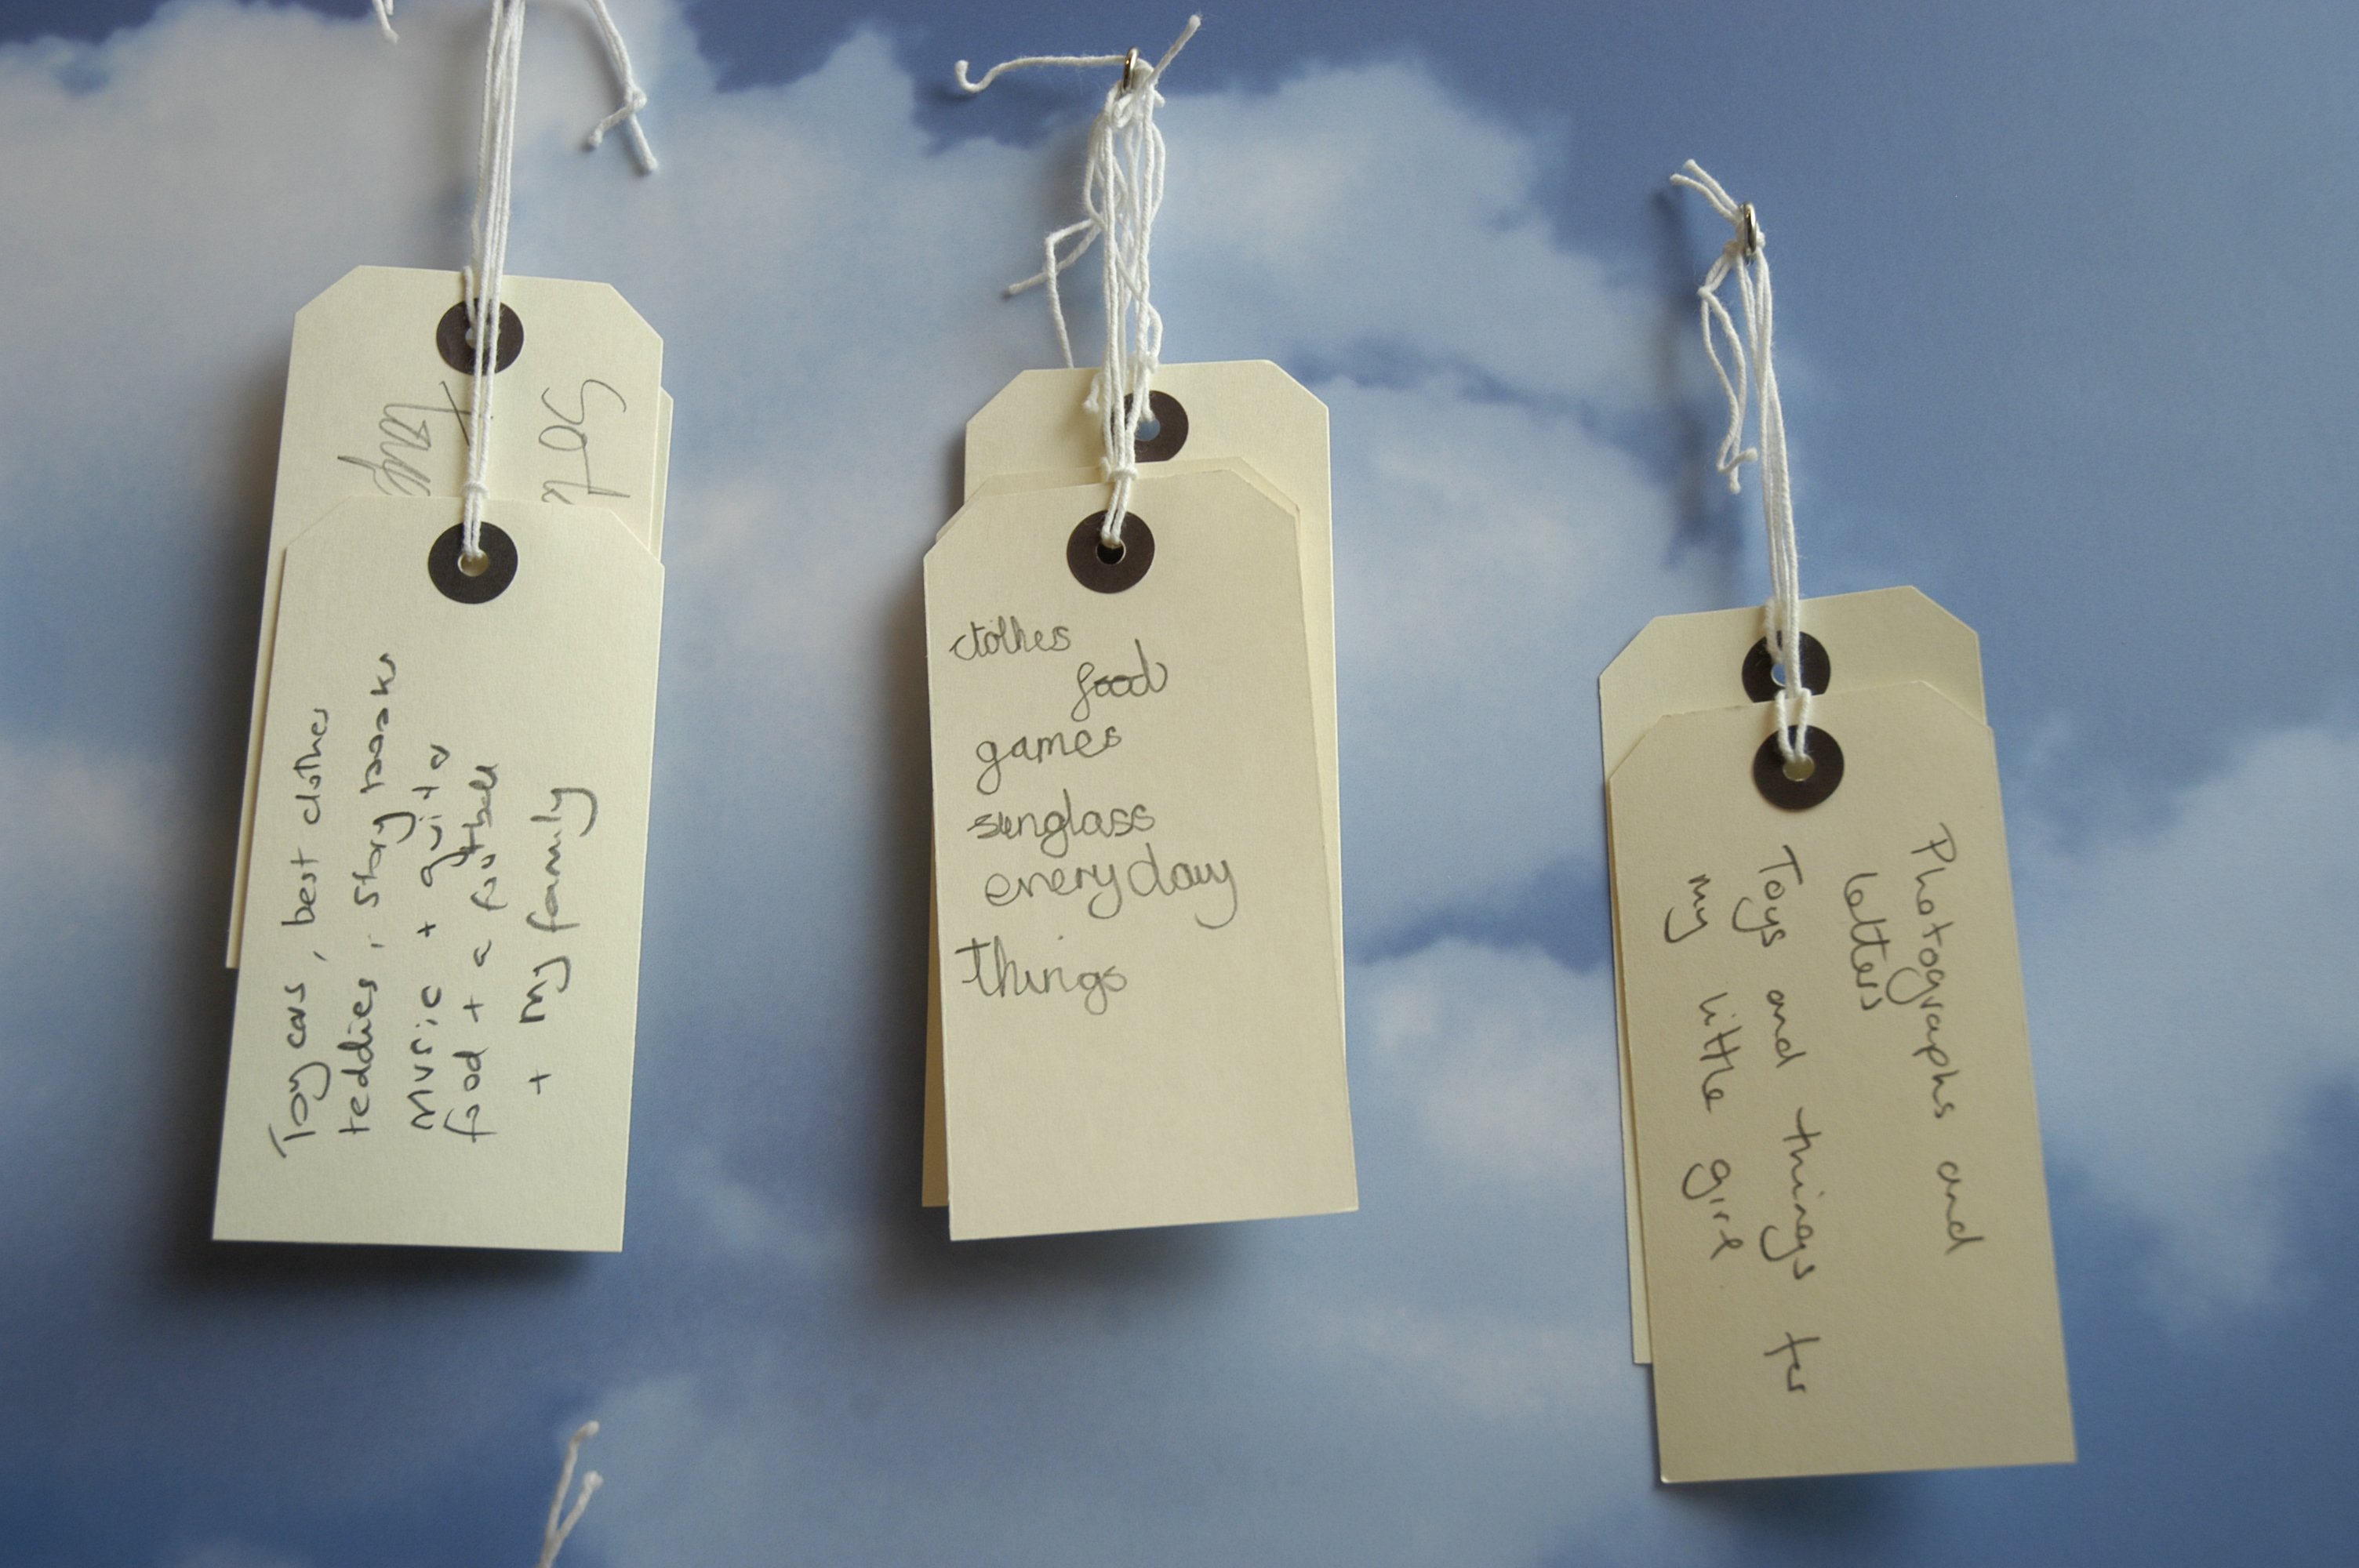 Toy cars, best clothes
teddies, story books
music + guitar
food + a football
+ my family
clothes
food
games
sunglass
everyday
things
Photographs and
letters
Toys and things for
my little girl